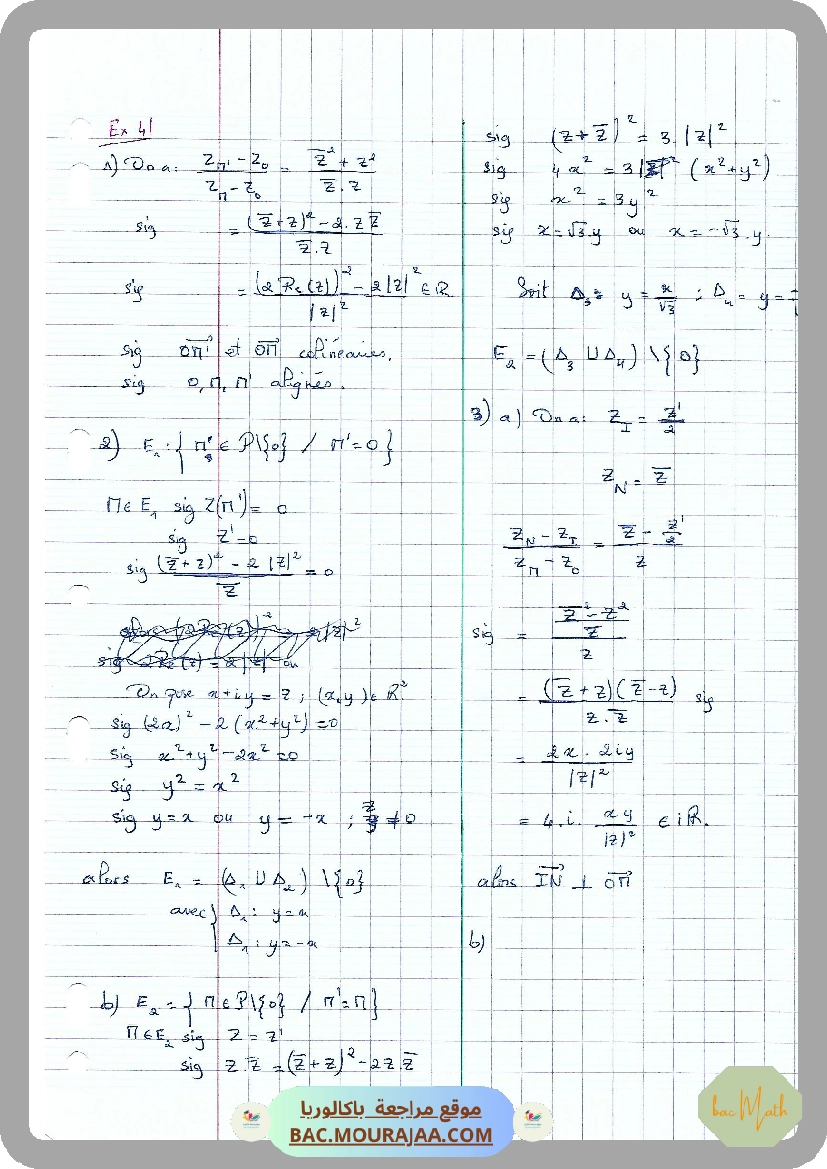 Ex 41
1) On a : (Z_M' - Z_0)/(Z_M - Z_0) = (z̄² + z²)/(z̄ . z)
sig = ((z̄ + z)² - 2 . z z̄)/(z̄ . z)
sig = ((2 Re(z))² - 2|z|²)/|z|² ∈ ℝ
sig OM' et OM colinéaires.
sig O, M, M' alignés.
2) E₁ : { M ∈ P\{0} / M' = 0 }
M ∈ E₁ sig Z(M') = 0
sig Z' = 0
sig ((z̄ + z)² - 2|z|²)/z̄ = 0
On pose x + iy = z ; (x,y) ∈ ℝ²
sig (2x)² - 2(x² + y²) = 0
sig x² + y² - 2x² = 0
sig y² = x²
sig y = x ou y = -x ; z ≠ 0
alors E₁ = (Δ₁ ∪ Δ₂) \ {0}
avec { Δ₁ : y = x
Δ₁ : y = -x
b) E₂ = { M ∈ P\{0} / M' = M }
M ∈ E₂ sig Z = Z'
sig z . z̄ = (z̄ + z)² - 2z . z̄
sig (z + z̄)² = 3 . |z|²
sig 4x² = 3 (x² + y²)
sig x² = 3y²
sig x = √3 . y ou x = -√3 . y.
Soit Δ₃ = y = x/√3 ; Δ₄ = y = -
E₂ = (Δ₃ ∪ Δ₄) \ {0}
3) a) On a : Z_I = Z'/2
Z_N = z̄
(Z_N - Z_I)/(Z_M - Z_0) = (z̄ - z'/2)/z
sig = ((z̄² - z²)/z̄)/z
= ((z̄ + z)(z̄ - z))/(z . z̄) sig
= (2x . 2iy)/|z|²
= 4 . i . xy/|z|² ∈ iℝ.
alors IN ⊥ OM
b)
موقع مراجعة باكالوريا
BAC.MOURAJAA.COM
bac Math